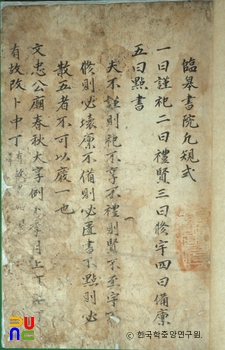 臨皐書院凡規式
一曰謹祀二曰禮賢三曰修宇四曰備廩
五曰點書
夫不謹則祀不享不禮則賢不至宇不
修則必壞廩不備則必匱書不點則必
散五者不可以廢一也
文忠公廟春秋大享例卜上丁
有故改卜中丁
© 한국학중앙연구원